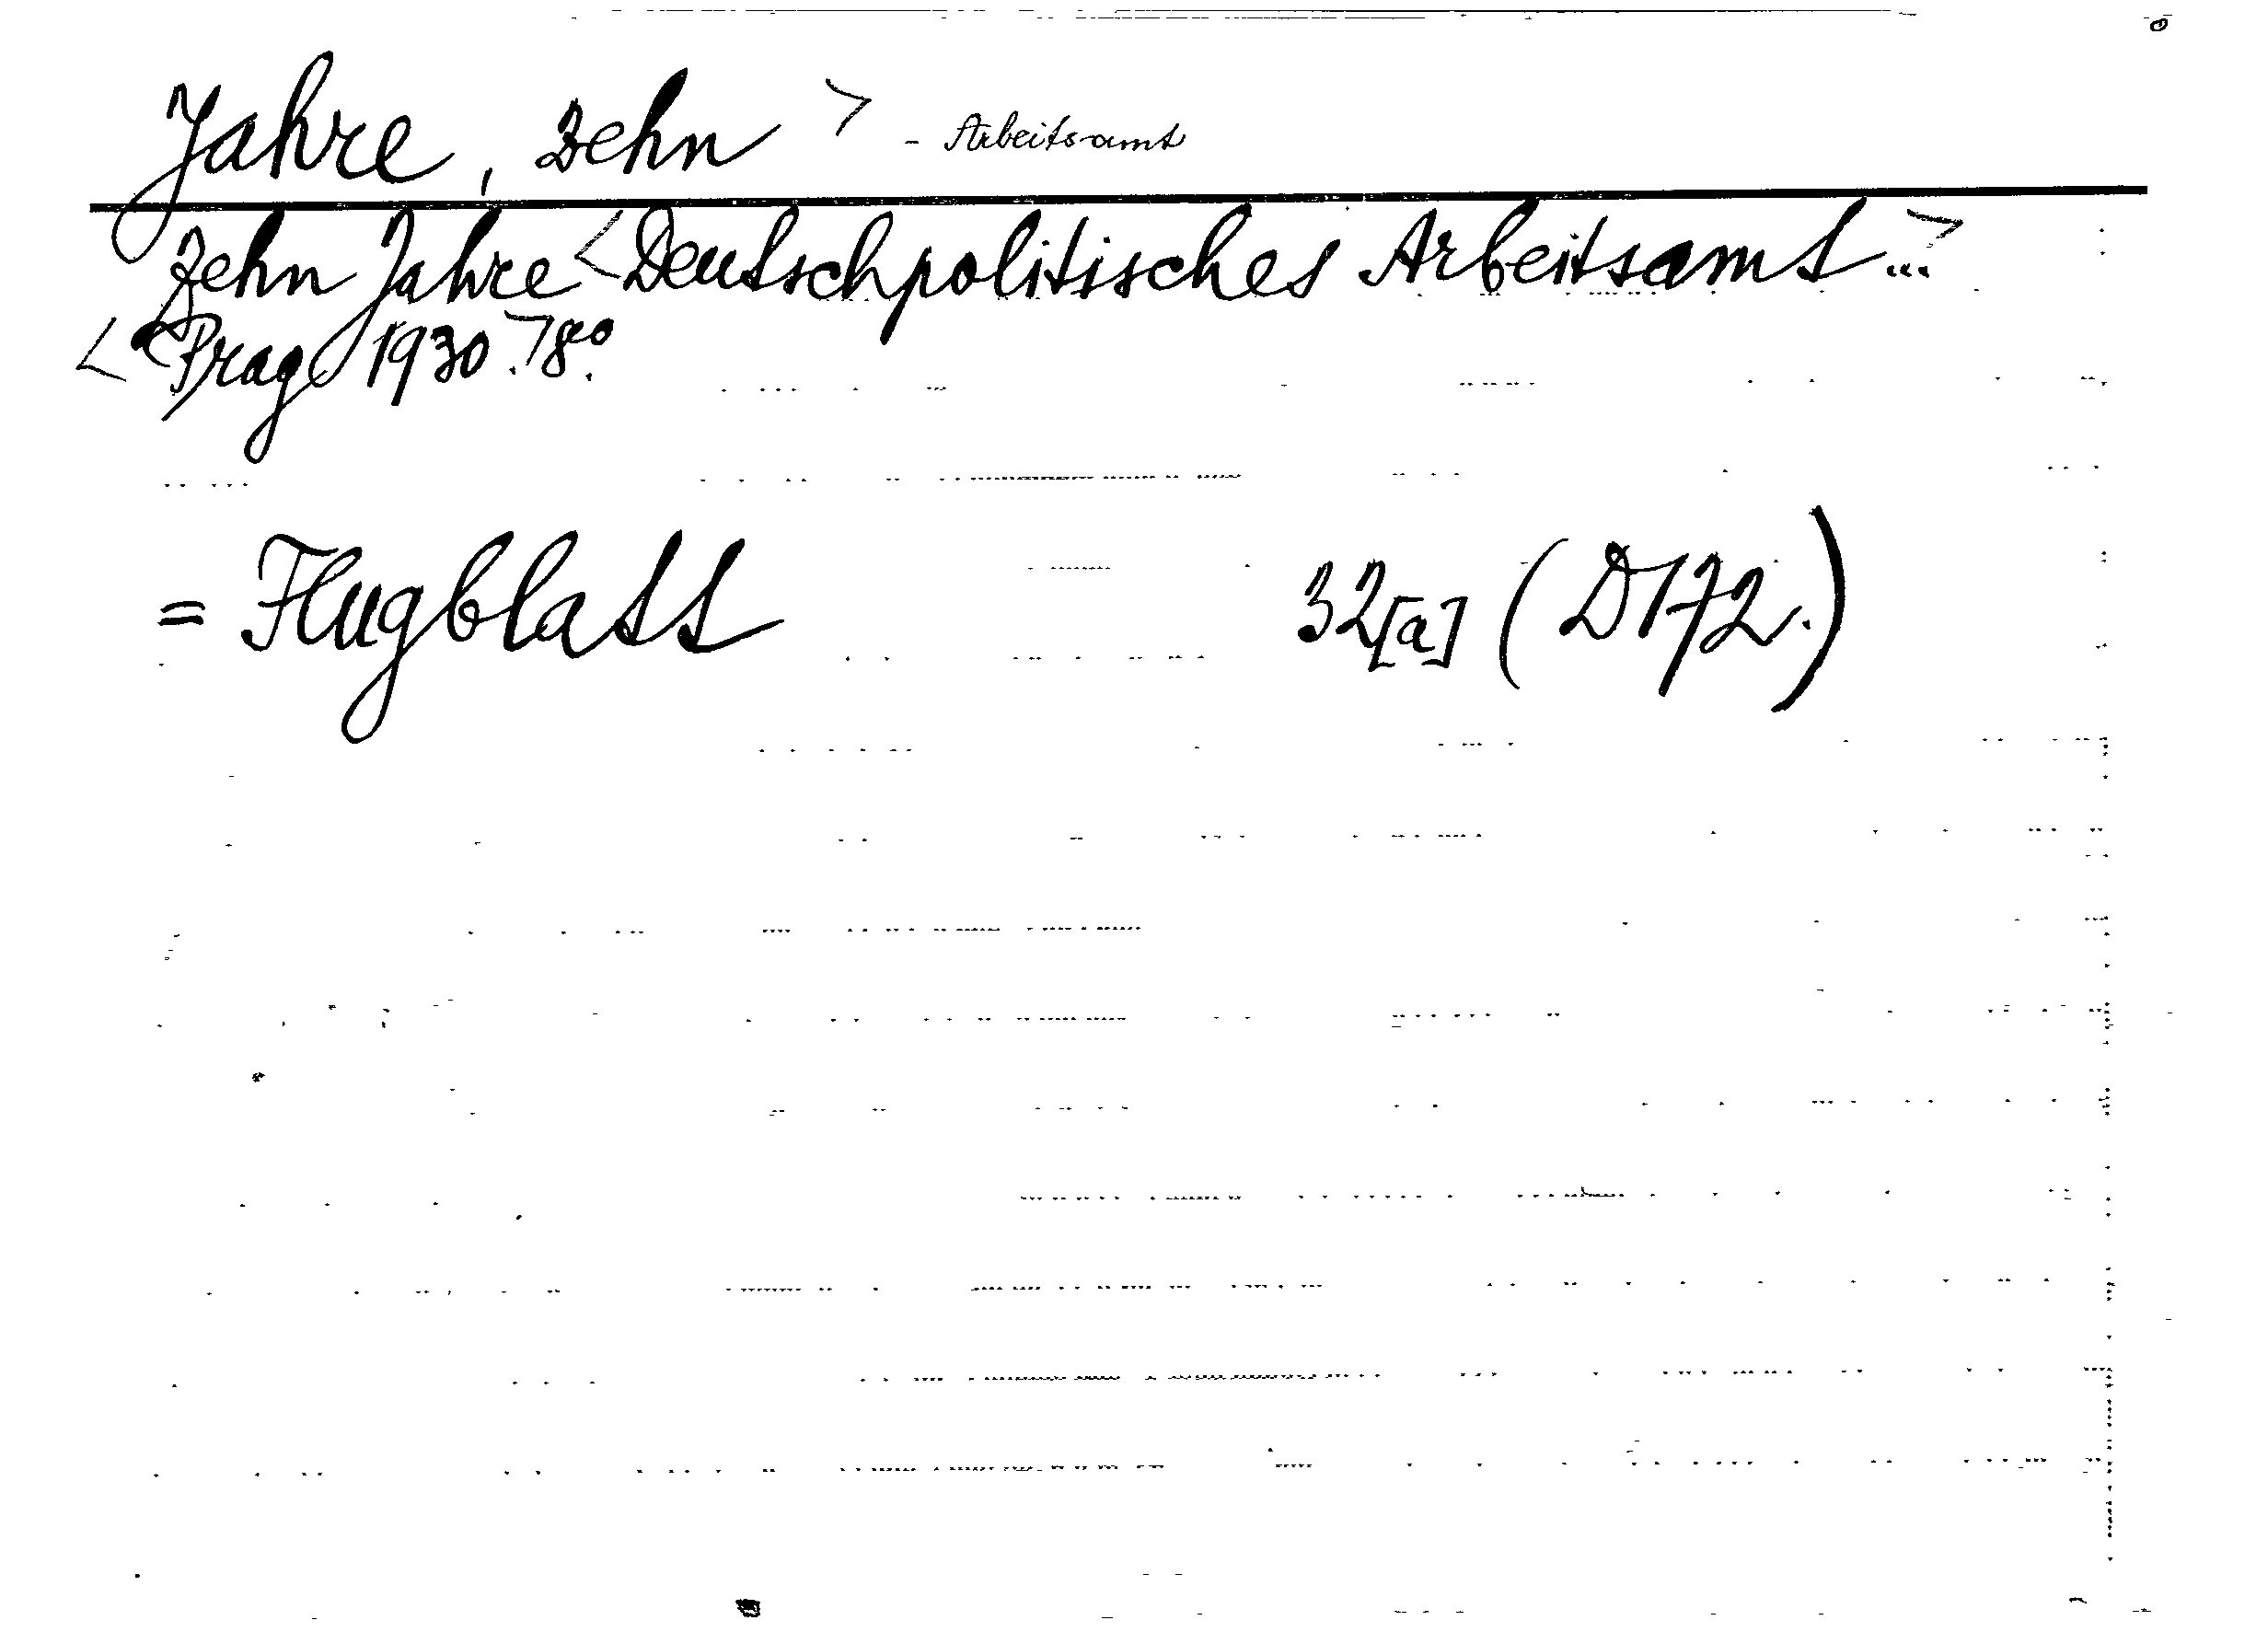 Jahre, zehn > - Arbeitsamt
Zehn Jahre <Deutschpolitisches Arbeitsamt...>
<Prag 1930.> 8°.
= Flugblatt 32[a] (D172.)